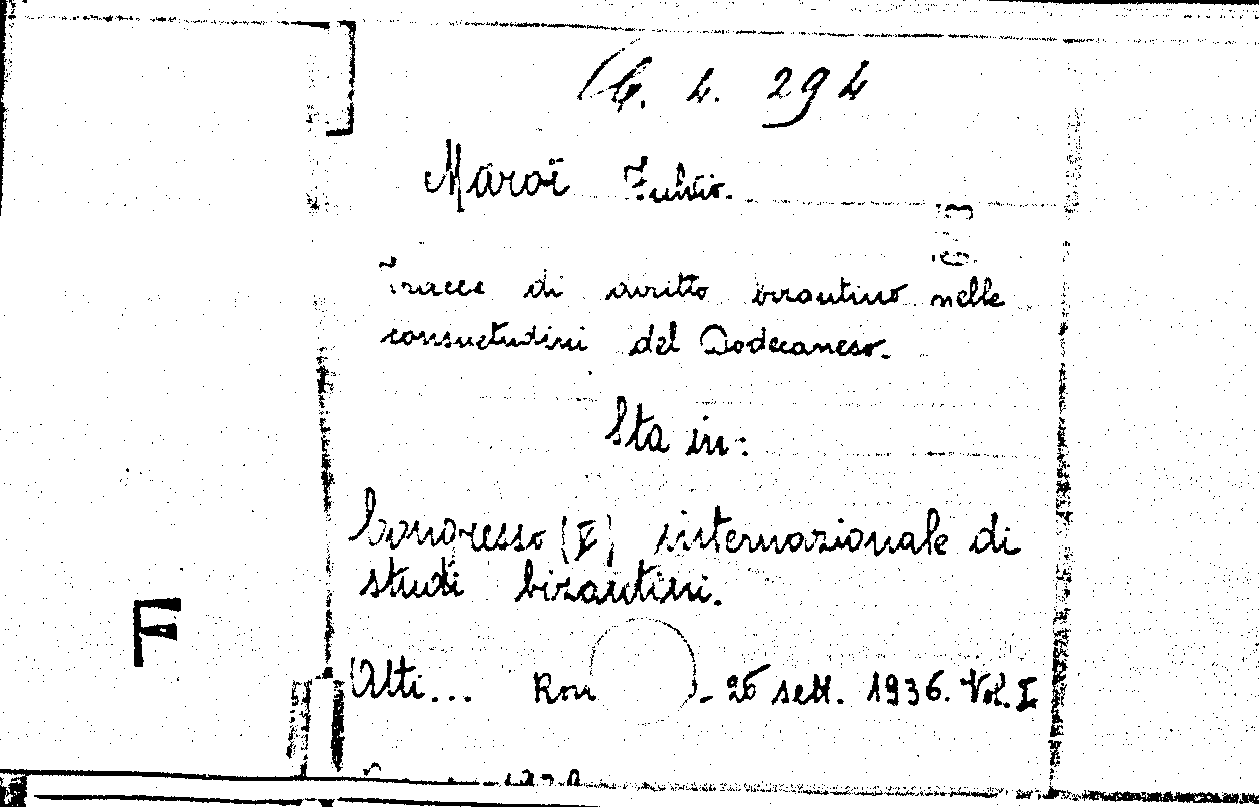 4. 294
Maroi Fulvio.
Tracce di diritto bizantino nelle
consuetudini del Dodecaneso.
Sta in:
Congresso (V) internazionale di
studi bizantini.
Atti... Rom - 26 sett. 1936. Vol. I
F